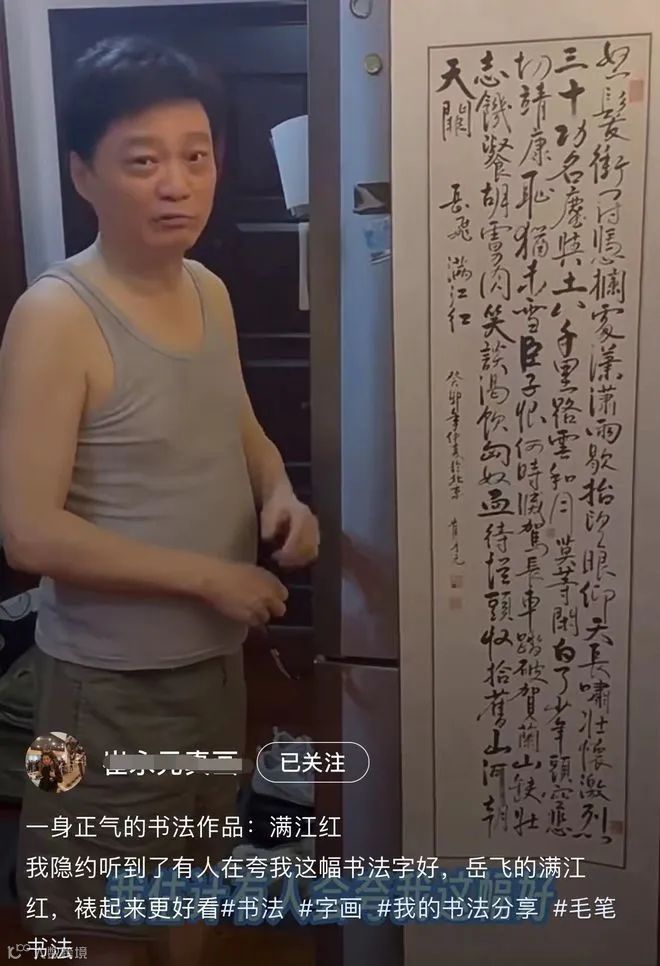 怒髮衝冠憑欄處瀟瀟雨歇抬望眼仰天長嘯壯懷激烈
三十功名塵與土八千里路雲和月莫等閑白了少年頭空悲
切靖康耻猶未雪臣子恨何時滅駕長車踏破賀蘭山缺壯
志饑餐胡虜肉笑談渴飲匈奴血待從頭收拾舊山河朝
天闕 岳飛 满江红
癸卯年仲夏於北京
已关注
一身正气的书法作品：满江红
我隐约听到了有人在夸我这幅书法字好，岳飞的满江
红，裱起来更好看#书法 #字画 #我的书法分享 #毛笔
书法